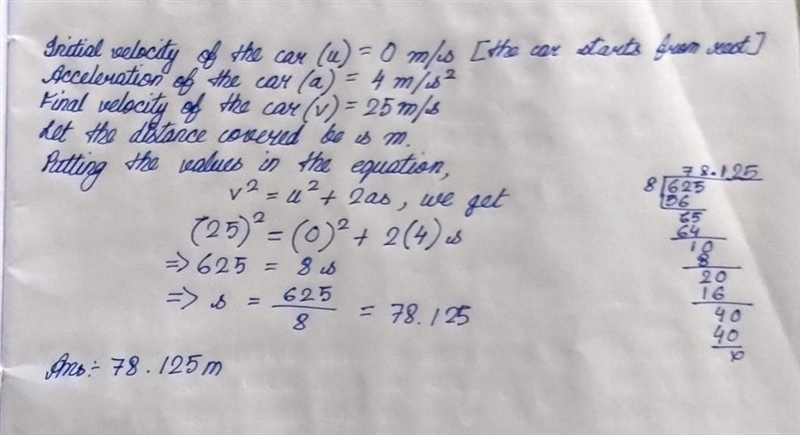 Initial velocity of the car (u) = 0 m/s [the car starts from rest]
Acceleration of the car (a) = 4 m/s²
Final velocity of the car (v) = 25 m/s
Let the distance covered be s m.
Putting the values in the equation,
v² = u² + 2as, we get
(25)² = (0)² + 2(4) s
=> 625 = 8 s
=> s = 625/8 = 78.125
Ans:- 78.125 m
78.125
8 625
56
65
64
10
8
20
16
40
40
0